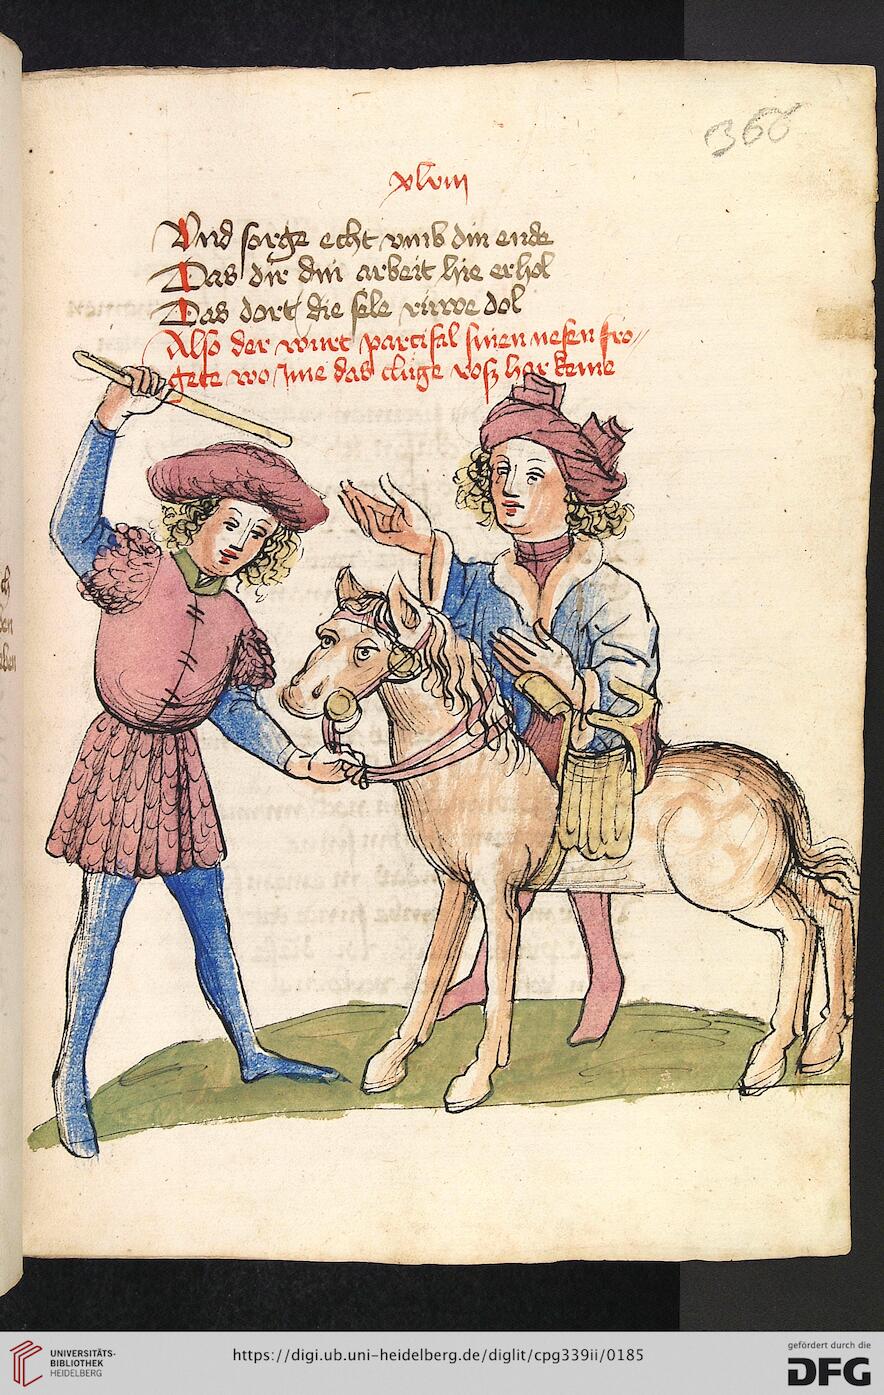 366
xlviii
Vnd sorge echt vmb din ende
Das dir din arbeit hie erhol
Das dort die sele ruwe dol
Also der wurt parcifal sinen nefen fro//
gete wo jme das cluge rosz har keme
UNIVERSITÄTS-
BIBLIOTHEK
HEIDELBERG
https://digi.ub.uni-heidelberg.de/diglit/cpg339ii/0185
gefördert durch die
DFG